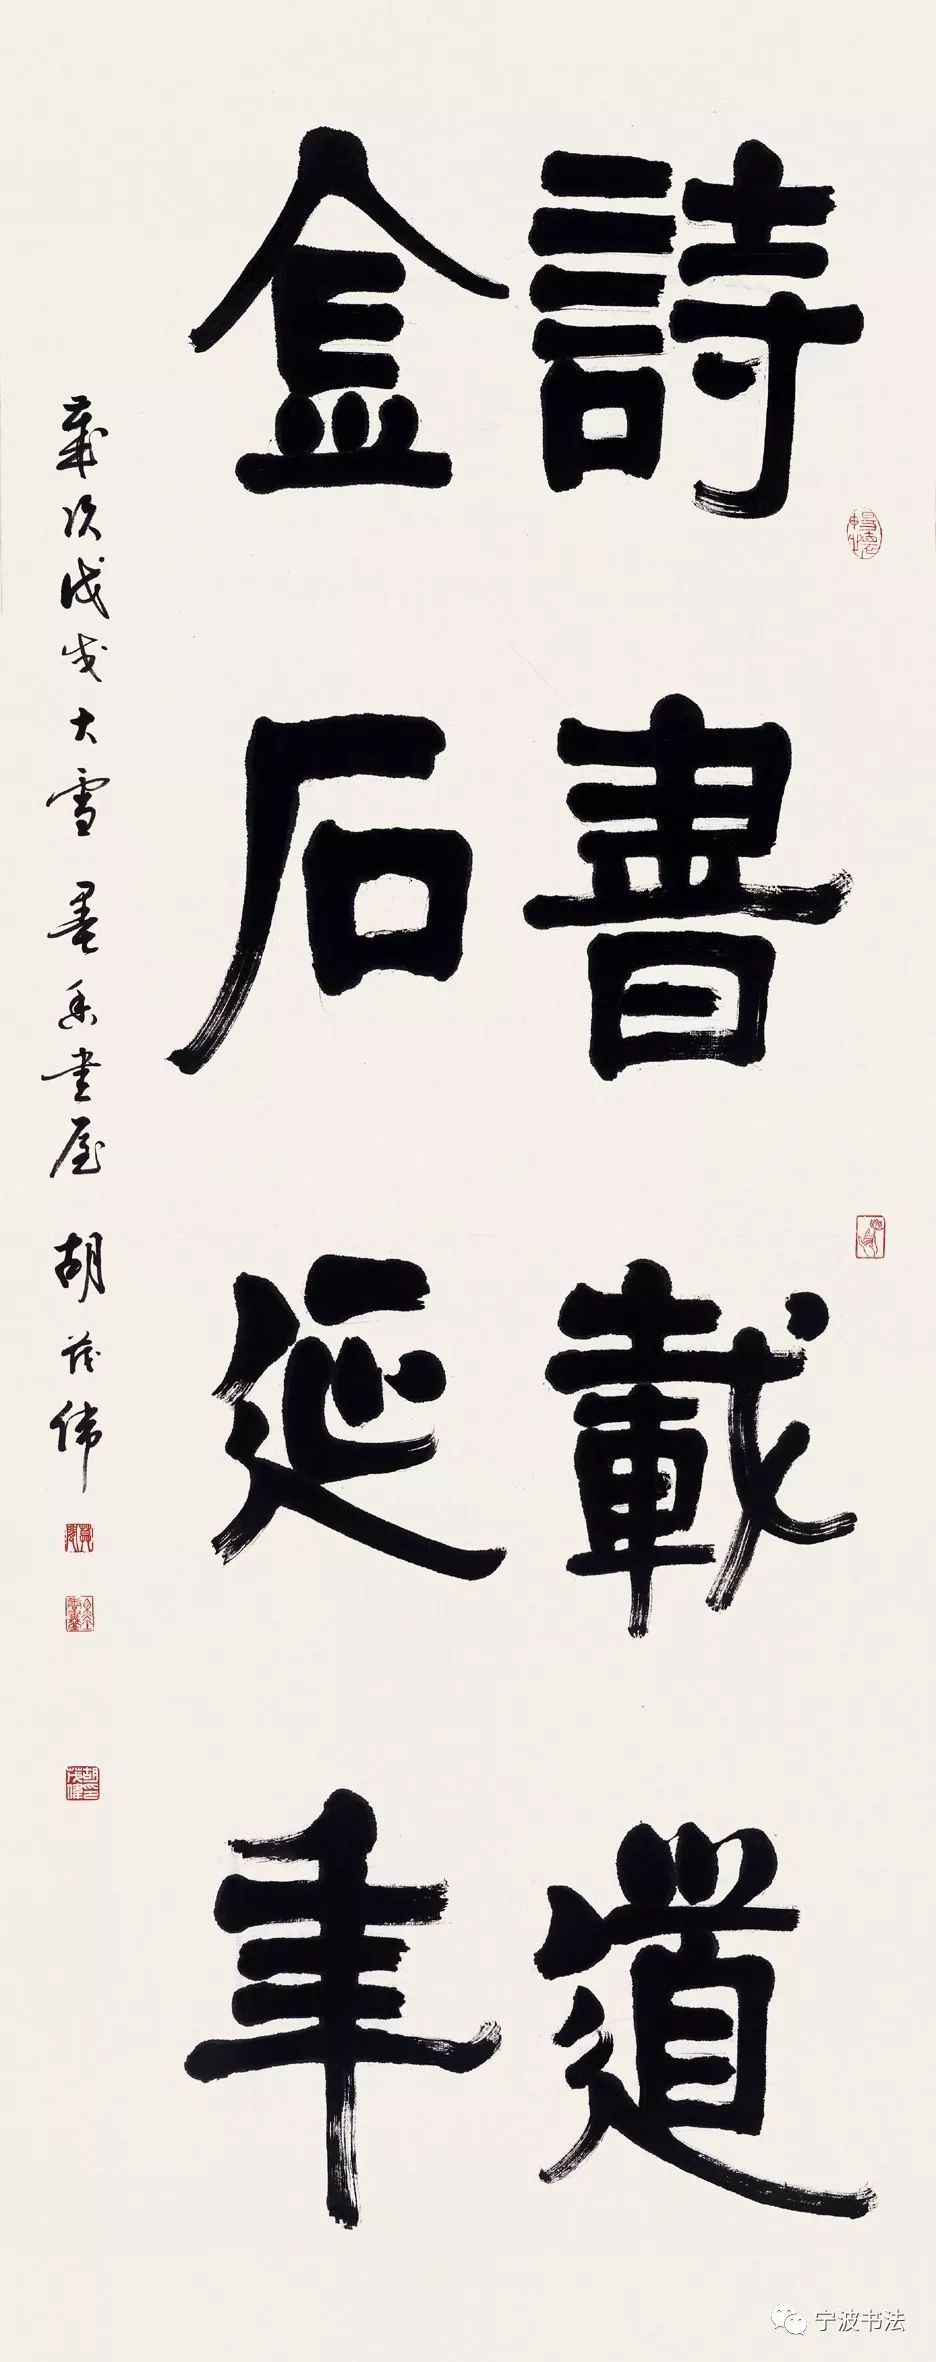 詩書載道
金石延年
歲次戊戌大雪墨香書屋胡茂偉
宁波书法